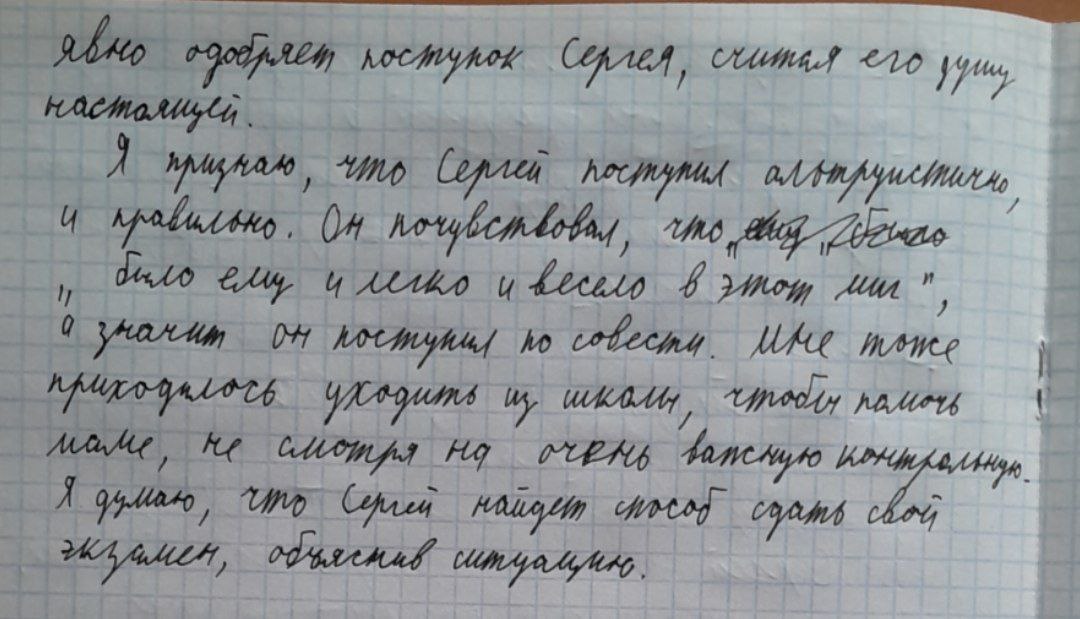 явно одобряет поступок Сергея, считая его душу
настоящей.
Я признаю, что Сергей поступил альтруистично,
и правильно. Он почувствовал, что
„было ему и легко и весело в этот миг",
а значит он поступил по совести. Мне тоже
приходилось уходить из школы, чтобы помочь
маме, не смотря на очень важную контрольную.
Я думаю, что Сергей найдет способ сдать свой
экзамен, объяснив ситуацию.